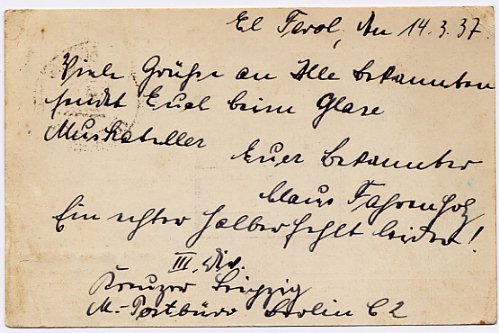 El Ferol, den 14.3.37.
Viele Grüße an Alle Bekannten
sendet Euch beim Glase
Muskateller
Euer Bekannter
Claus Fahrenholz
Ein echter halber fehlt leider!
III. Div.
Kreuzer Leipzig
M.-Postbüro Berlin C2